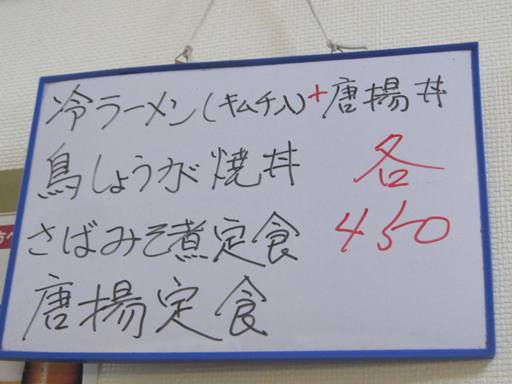 冷ラーメン(キムチ入)+唐揚丼
鳥しょうが焼丼 各
さばみそ煮定食 450
唐揚定食